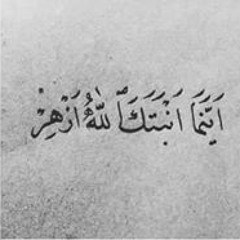 اَيَنَمَا اَنبَتَكَ اَللهُ اَزْهِرْ